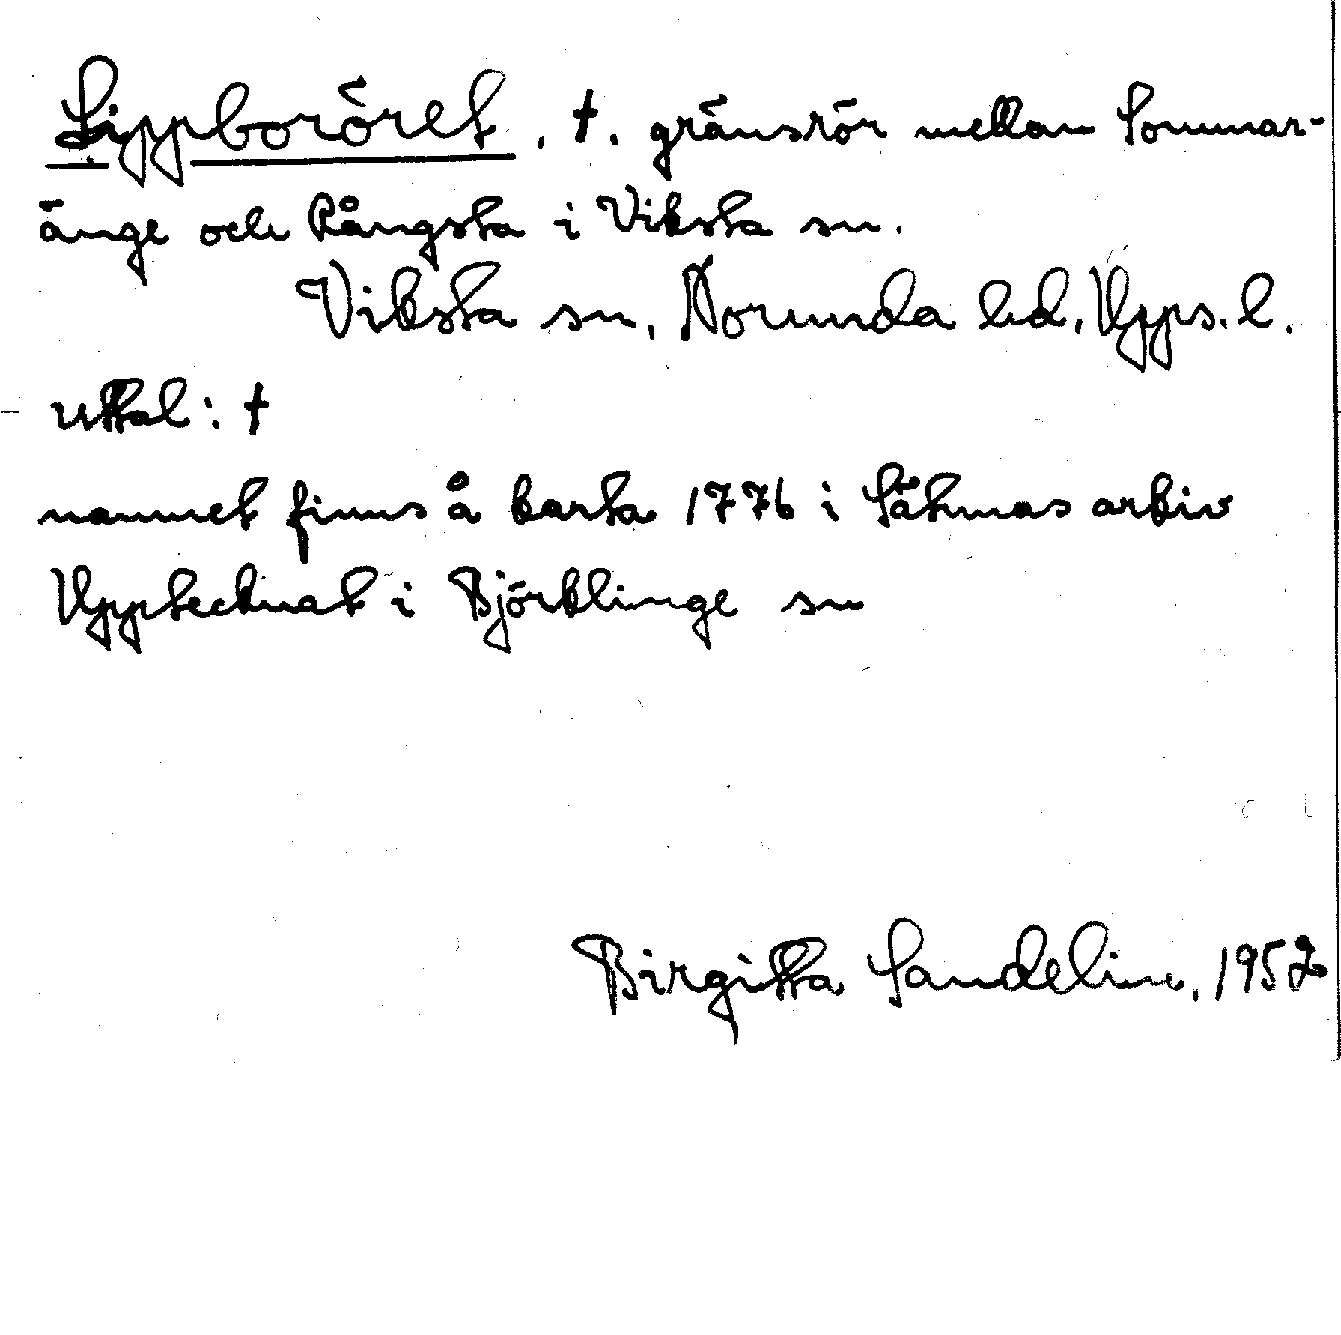 Lippboröret, †. gränsrör mellan Sommar-
änge och Rångsta i Viksta sn.
Viksta sn, Norunda hd, Upps. l.
uttal: †
namnet finns å karta 1776 i Sätunas arkiv
Upptecknat i Björklinge sn
Birgitta Sandelin, 1952